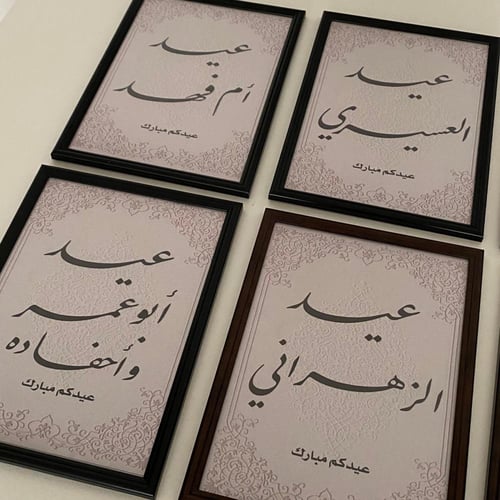 عيد
أم فهد
عيدكم مبارك
عيد
العسيري
عيدكم مبارك
عيد
أبو عمر
وأحفاده
عيدكم مبارك
عيد
الزهراني
عيدكم مبارك